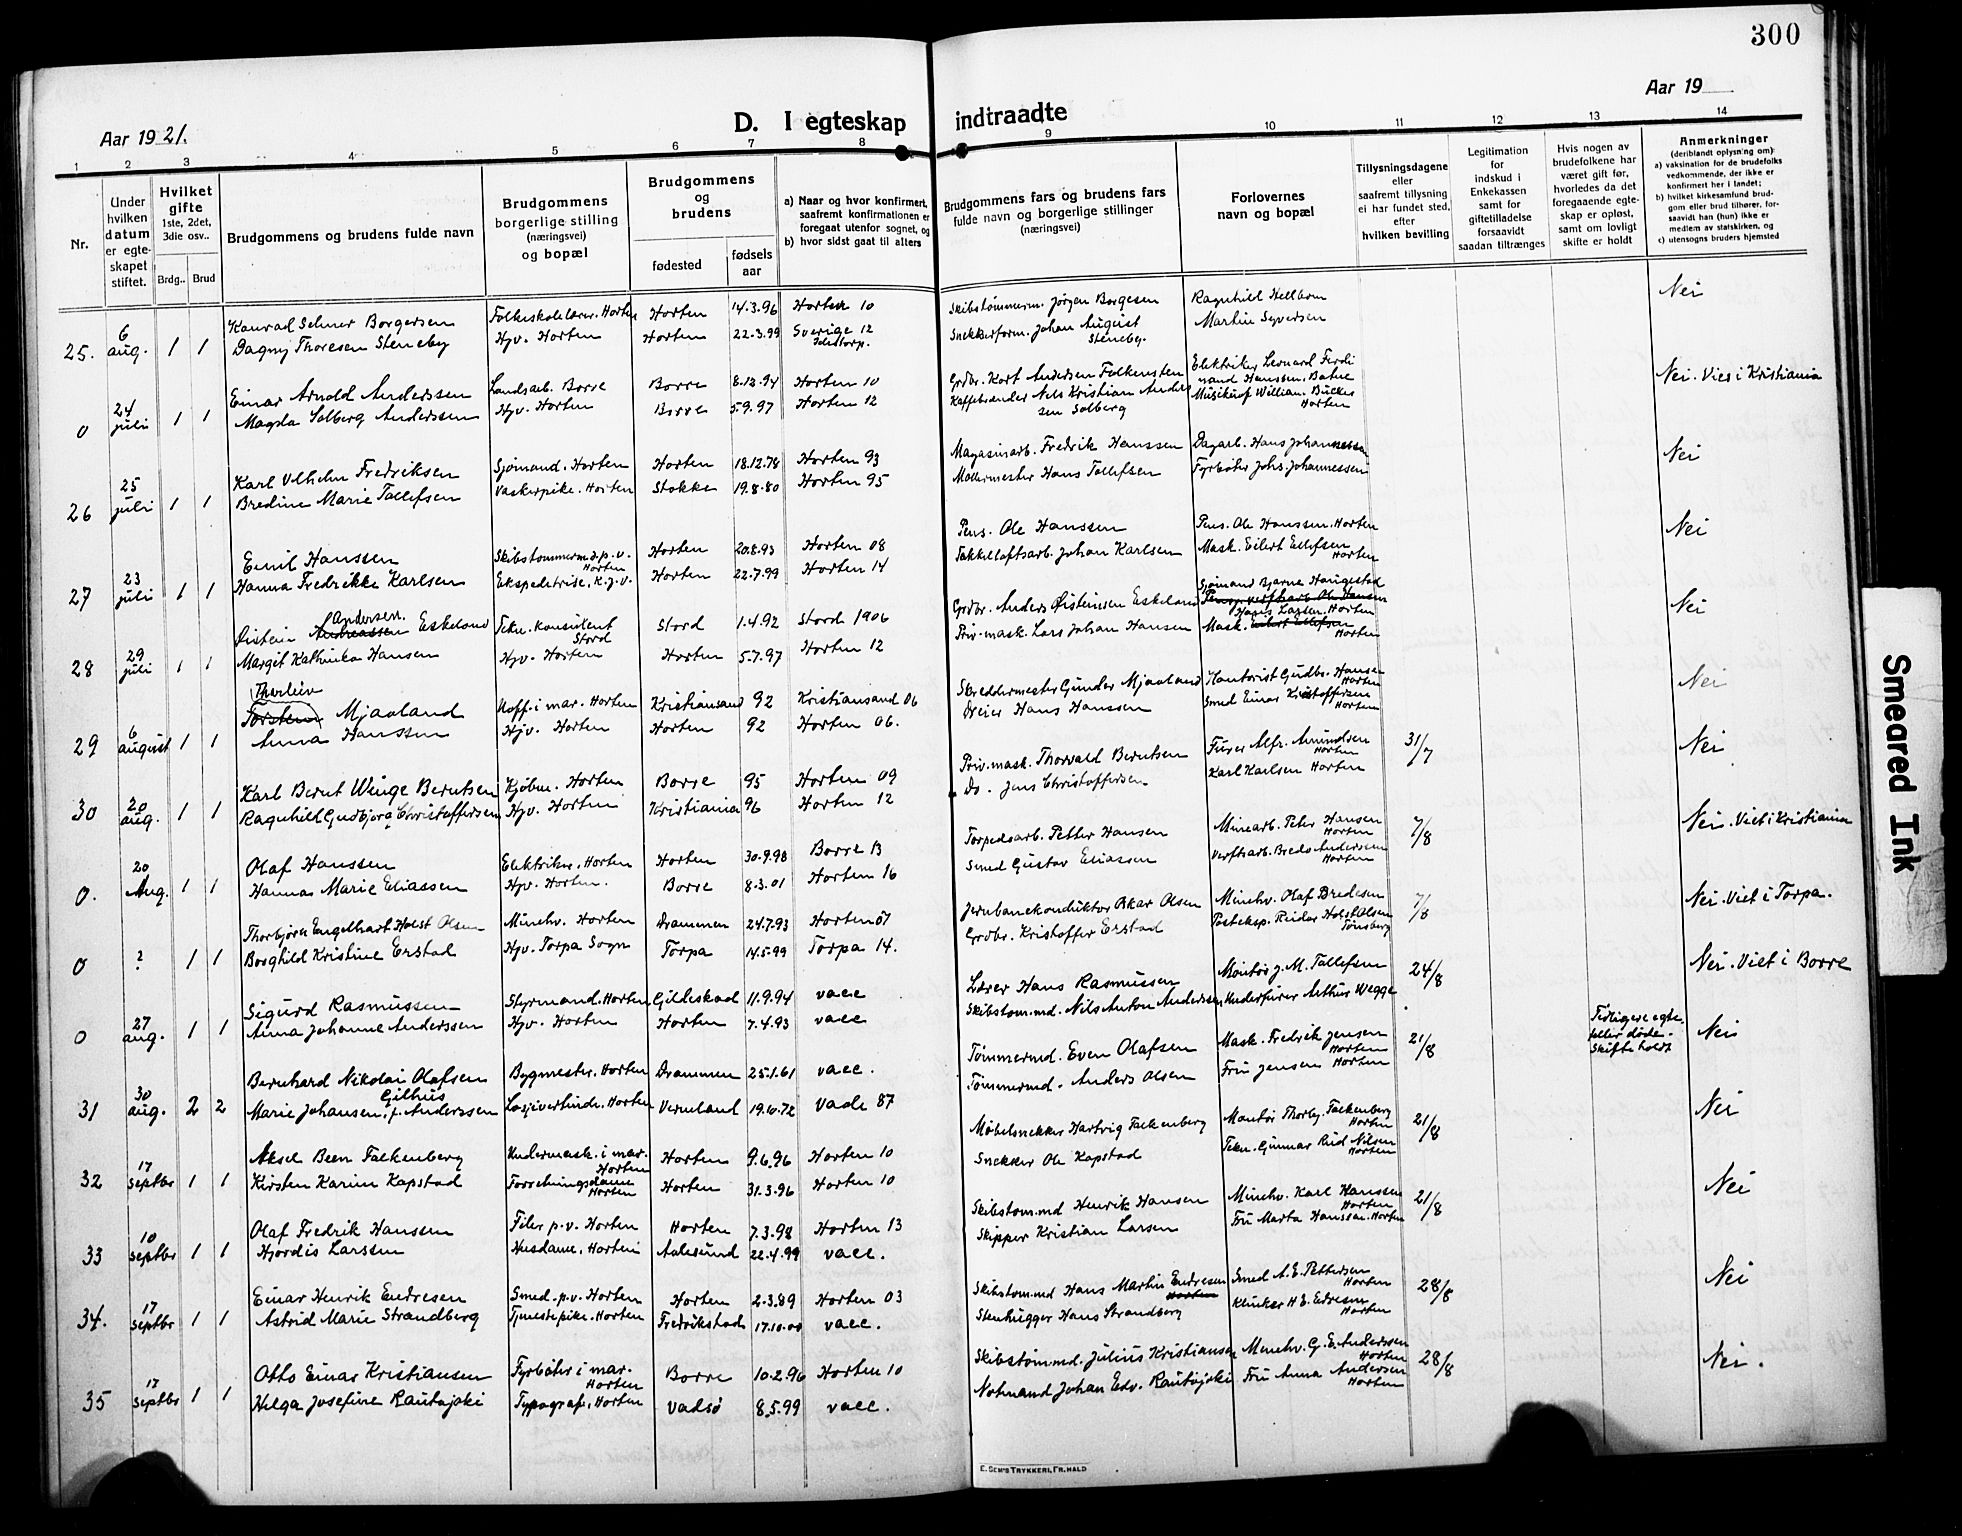 300
Aar 1921.
D. I egteskap indtraadte
Aar 19
1 2 3 4 5 6 7 8 9 10 11 12 13 14
Nr.
Under hvilken datum er egteskapet stiftet.
Hvilket gifte
1ste, 2det, 3die osv..
Brdg.. Brud
Brudgommens og brudens fulde navn
Brudgommens borgerlige stilling (næringsvei) og bopæl
Brudgommens og brudens
fødested
fødsels aar
a) Naar og hvor konfirmert, saafremt konfirmationen er foregaat utenfor sognet, og
b) hvor sidst gaat til alters
Brudgommens fars og brudens fars fulde navn og borgerlige stillinger (næringsvei)
Forlovernes navn og bopæl
Tillysningsdagene eller saafremt tillysning ei har fundet sted, efter hvilken bevilling
Legitimation for indskud i Enkekassen samt for giftetilladelse forsaavidt saadan tiltrænges
Hvis nogen av brudefolkene har været gift før, hvorledes da det foregaaende egteskap er opløst, samt om lovligt skifte er holdt
Anmerkninger
(deriblandt oplysning om)
a) vaksination for de brudefolks vedkommende, der ikke er konfirmert her i landet;
b) hvilket kirkesamfund brudgom eller brud tilhører, forsaavidt han (hun) ikke er medlem av statskirken, og
c) utensogns bruders hjemsted
25. 6 aug. 1 1
Konrad Selmer Borgersen Folkeskolelærer. Horten Horten 14.3.96 Horten 10 Skibstømmerm. Jörgen Borgesen Ragnhild Hellbom Nei
Dagny Thoresen Steneby Hjv. Horten Horten 22.3.99 Sverige 12 Snekkerform. Johan August Steneby. Martin Syversen
0 24 juli 1 1
Einar Arnold Anderssen Landsarb. Borre Borre 8.12.94 Horten 10 Grdbr. Kort Andersen Falkensten Elektriker Leonard Ferdinand Hanssen. Nei. Viet i Kristiania
Magda Solberg Anderssen Hjv. Horten Borre 5.9.97 Horten 12 Kaffebrænder Nels Kristian Andersen Solberg William Horten
26 25 juli 1 1
Karl Vilhelm Fredriksen Sjömand. Horten Horten 18.12.78 Horten 93 Magasinarb. Fredrik Hanssen Dagarb. Hans Johannessen Nei
Bredine Marie Tollefsen Vaskerpike. Horten Stokke 19.8.80 Horten 95 Hans Tollefsen Fyrböter Johs. Johannessen
27 23 juli 1 1
Emil Hanssen Skibstømmerm. d.p.v. Horten Horten 20.8.93 Horten 08 Pens. Ole Hanssen Pens. Ole Hanssen. Horten Nei
Hanna Fredrikke Karlsen Ekspeditrise, K.j.v. Horten 22.7.99 Horten 14 Takkelloftsarb. Johan Karlsen Mask. Eilert Ellefsen Horten
28 29 juli 1 1
Øistein Andreassen Andersen Eskeland Tekn. Konsulent Stord Stord 1.4.92 Stord 1906 Grdbr. Anders Øistensen Eskeland Sjömand Bjarne Haugestad Nei
Margit Kathinka Hansen Hjv. Horten Horten 5.7.97 Horten 12 Priv. mask. Lars Johan Hansen Mask. Eilert Ellefsen Hans Larsen. Horten Horten
29 6 august 1 1
Thorleiv Torstein Mjaaland Uoff. i mar. Horten Kristiansand 92 Kristiansand 06 Skreddermester Gunder Mjaaland Kontorist Gudbr. Hansen Horten Nei
Anna Hanssen Hjv. Horten Horten 92 Horten 06. Dreier Hans Hanssen Smed Einar Kristoffersen Horten
30 20 aug. 1 1
Karl Bernt Winge Berntsen Kjöbm. Horten Borre 95 Horten 09 Priv. mask. Thorvald Berntsen Furer Alfr. Amundsen Horten 31/7 Nei
Ragnhild Gudbjørg Christoffersen Hjv. Horten Kristiania 96 Horten 12 Do. Jens Christoffersen Karl Karlsen Horten
0. 20 Aug. 1 1
Olaf Hanssen Elektriker. Horten Horten 30.9.98 Borre 13 Torpedoarb. Petter Hansen Minearb. Peter Hansen Horten 7/8 Nei. Viet i Kristiania
Hannas Marie Eliassen Hjv. Horten. Borre 8.3.01 Horten 16 Smed Gustav Eliassen Verftsarb. Bredo Anderssen Horten
0 ? 1 1
Thorbjörn Engelhart Holst Olsen Minehv. Horten Drammen 24.7.93 Horten 07 Jernbanekonduktør Oskar Olsen Minehv. Olaf Bredesen 7/8 Nei. Viet i Torpa.
Borghild Kristine Erstad Hjv. Torpa Sogn Torpa 14.5.99 Torpa 14. Grdbr. Kristoffer Erstad Posteksp. Reidar Holst Olsen Tønsberg
0 27 aug. 1 1
Sigurd Rasmussen Styrmand. Horten Gildeskaal 11.9.94 vacc Lærer Hans Rasmussen Montör J. M. Tollefsen 24/8 Nei. Viet i Borre
Anna Johanne Anderssen Hjv. Horten Horten 7.4.93 vacc Skibstøm.md. Nils Anton Anderssen Underfurer Arthur Wegge
31 30 aug. 2 2
Bernhard Nikolai Olafsen Gilhus Bygmester. Horten Drammen 25.1.61 vacc. Tömmermd. Even Olafsen Mask. Fredrik Jensen Horten 21/8 Tidligere egtefeller döde. Skifte holdt Nei
Marie Johansen, f. Anderssen Losjivertinde. Horten Vermland 19.10.72 Vade 87 Tömmermd. Anders Olsen Fru Jensen Horten
32 17 septbr 1 1
Aksel Been Falkenberg Undermask. i mar. Horten Horten 9.6.96 Horten 10 Möbelsnekker Hartvig Falkenberg Montör Thorbj. Falkenberg Horten 21/8 Nei
Kirsten Karin Kapstad Forretningsdame Horten Horten 31.3.96 Horten 10 Snekker Ole Kapstad Tekn. Gunnar Rud Nilsen Horten
33 10 septbr 1 1
Olaf Fredrik Hanssen Filer p.v. Horten Horten 7.3.98 Horten 13 Skibstøm.md Henrik Hansen Minehv. Karl Hanssen Horten 21/8 Nei
Hjördis Larssen Husdame. Horten Aalesund 22.4.99 vacc. Skipper Kristian Larsen Fru Marta Hanssen. Horten
34. 17 septbr 1 1
Einar Henrik Endresen Smed. p.v. Horten Horten 2.3.89 Horten 03 Skibstøm.md Hans Martin Endresen Horten Smed A. E. Pettersen Horten 28/8 Nei
Astrid Marie Strandberg Tjenestepike. Horten Fredrikstad 17.10.00 vacc. Stenhugger Hans Strandberg Klinker H. E. Horten
35 17 septbr 1 1
Otto Einar Kristiansen Fyrböter i mar. Horten Borre 10.2.96 Horten 10 Skibstøm.md. Julius Kristiansen Minehv. G. E. Anderssen Horten 28/8 Nei.
Helga Josefine Rautajoki Typograf, Horten Vadsö 8.5.99 vacc. Notmand Johan Edv. Rautajoki Fru Anna Andersen Horten
E. SEM'S TRYKKERI, FR.HALD
Smeared Ink